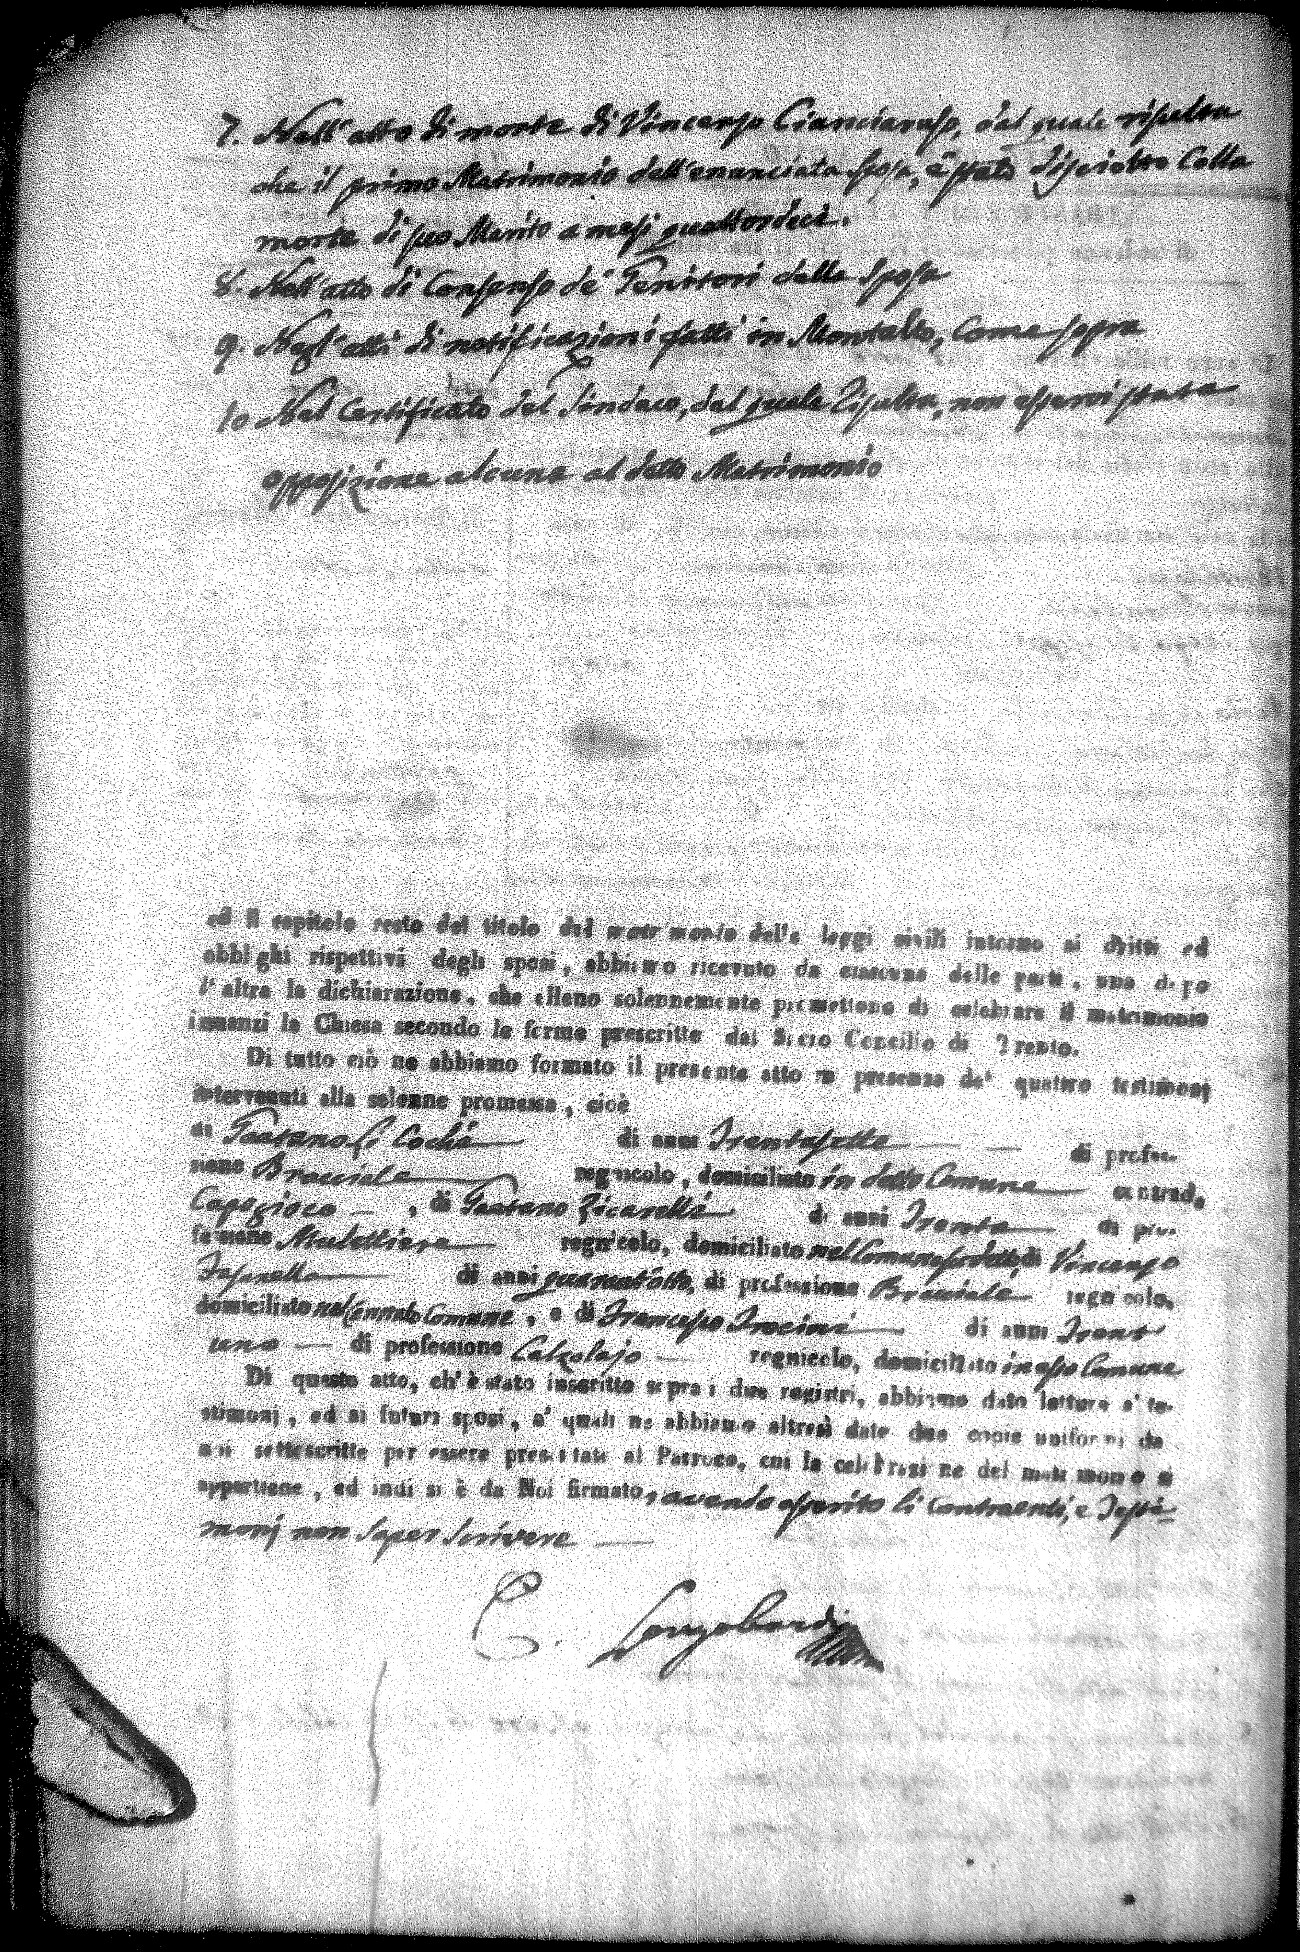 7. Nell'atto di morte di Vincenzo Cianciaruso, dal quale risulta
che il primo Matrimonio dell'enunciata sposa, è stato disciolto colla
morte di suo Marito a mesi quattordeci.
8. Nell'atto di Consenso de' Genitori della sposa
9. Negl'atti di notificazioni fatti in Montalto, Come sopra
10 Nel Certificato del Sindaco, dal quale risulta, non esservi stata
opposizione alcuna al detto Matrimonio
ed il capitolo sesto del titolo del matrimonio delle leggi civili intorno ai dritti ed
obblighi rispettivi degli sposi, abbiamo ricevuto da ciascuna delle parti, una dopo
l'altra la dichiarazione, che elleno solennemente promettono di celebrare il matrimonio
innanzi la Chiesa secondo le forme prescritte dal Sacro Concilio di Trento.
Di tutto ciò ne abbiamo formato il presente atto in presenza de' quattro testimonj
intervenuti alla solenne promessa, cioè
di Gaetano di anni Trentasette di profes-
sione Bracciale regnicolo, domiciliato in detto Comune contrada
, di Gaetano Zicarelli di anni Trenta di pro-
fessione Mulettiere regnicolo, domiciliato nel Comune di Vincenzo
Fasanella di anni quarant'otto, di professione Bracciale regnicolo,
domiciliato nel Comune, e di Francesco Trocini di anni Trent
uno di professione Calzolajo regnicolo, domiciliato in esso Comune
Di questo atto, ch'è stato inscritto sopra i due registri, abbiamo dato lettura a' te-
stimonj, ed ai futuri sposi, a' quali ne abbiamo altresì date due copie uniformi da
noi sottoscritte per essere presentate al Parroco, cui la celebrazione del matrimonio si
appartiene, ed indi si è da Noi firmato, avendo asserito li Contraenti, e Testi-
monj non saper scrivere
C. Longobardi